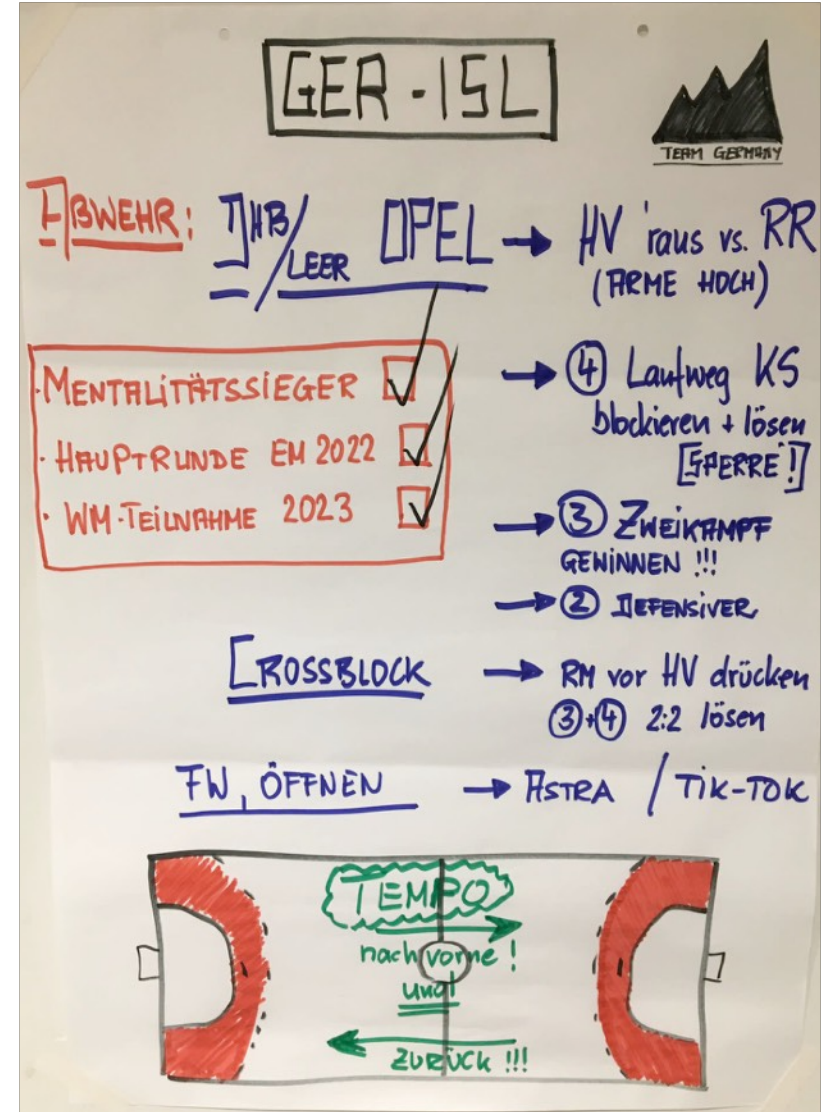 GER - ISL
TEAM GERMANY
ABWEHR:
DHB/LEER OPEL → HV 'raus vs. RR
(ARME HOCH)
· MENTALITÄTSSIEGER
· HAUPTRUNDE EM 2022
· WM-TEILNAHME 2023
→ ④ Laufweg KS
blockieren + lösen
[SPERRE!]
→ ③ ZWEIKAMPF
GEWINNEN !!!
→ ② DEFENSIVER
CROSSBLOCK → RM vor HV drücken
③+④ 2:2 lösen
FW, ÖFFNEN → ASTRA / TIK-TOK
TEMPO
nach vorne !
und
ZURÜCK !!!